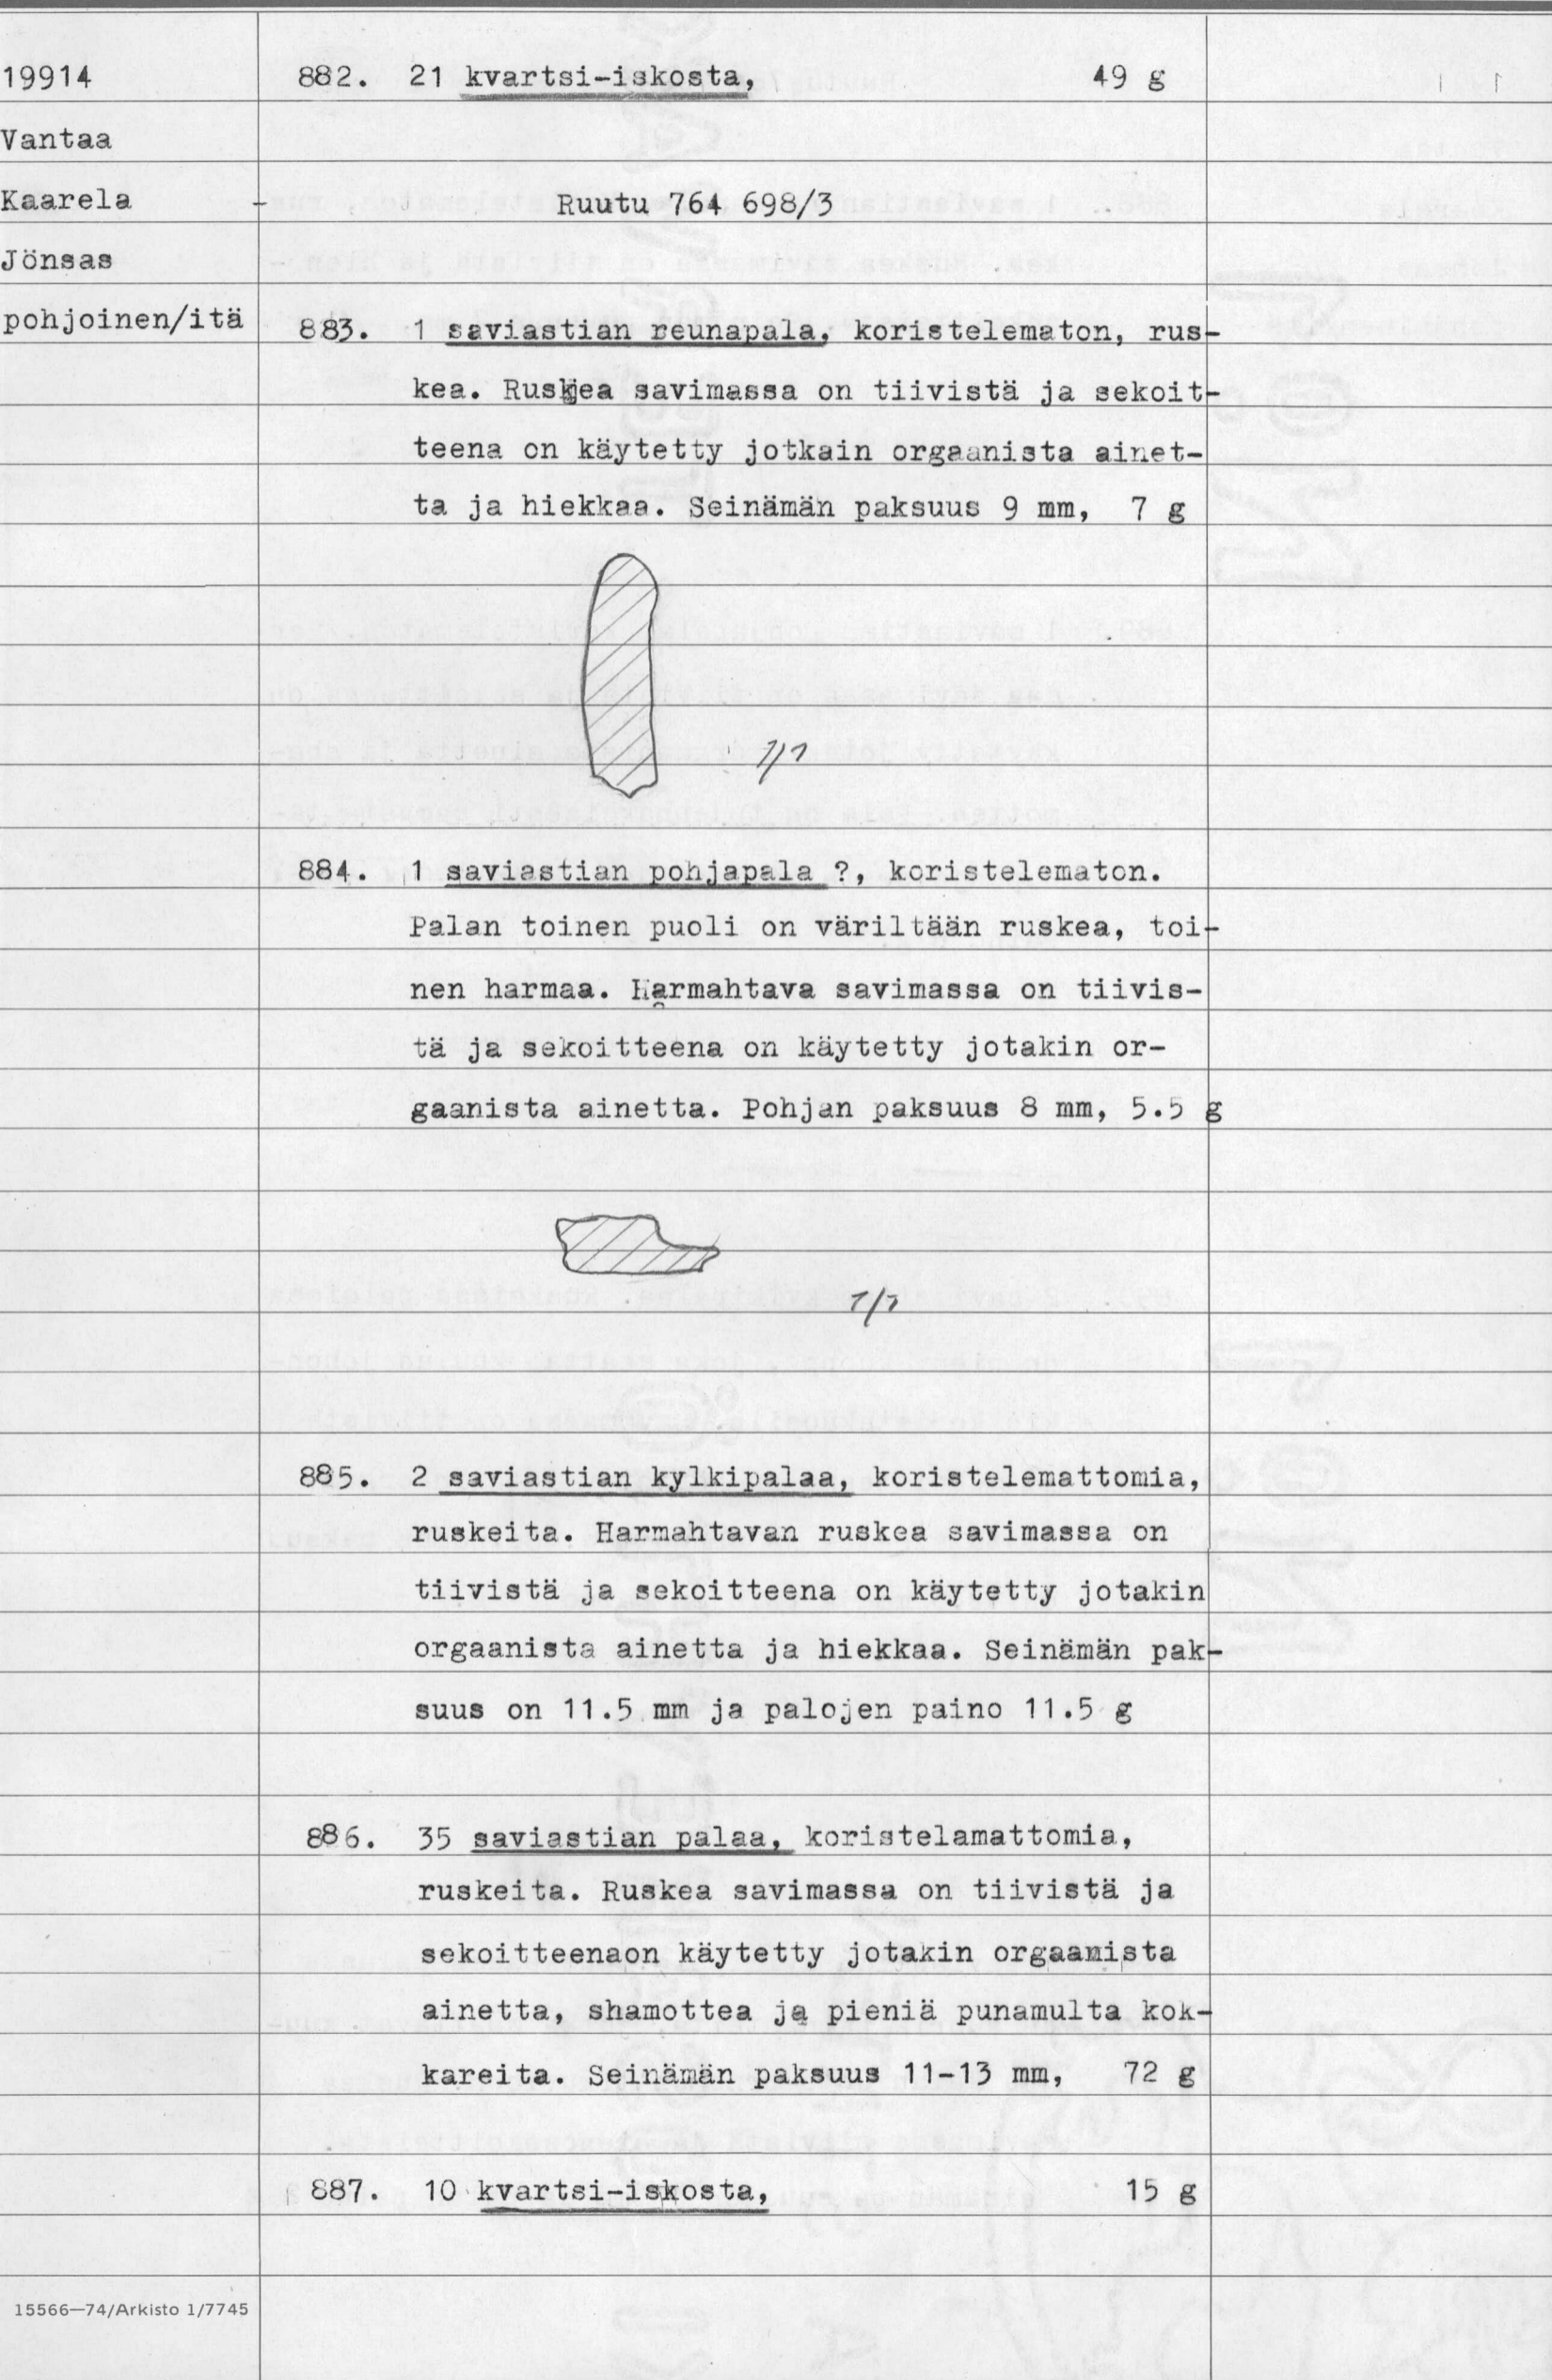 19914
882. 21 kvartsi-iskosta, 49 g
Vantaa
Kaarela
Ruutu 764 698/3
Jönsas
pohjoinen/itä
883. 1 saviastian reunapala, koristelematon, rus-
kea. Ruskea savimassa on tiivistä ja sekoit-
teena on käytetty jotkain orgaanista ainet-
ta ja hiekkaa. Seinämän paksuus 9 mm, 7 g
1/1
884. 1 saviastian pohjapala ?, koristelematon.
Palan toinen puoli on väriltään ruskea, toi-
nen harmaa. Harmahtava savimassa on tiivis-
tä ja sekoitteena on käytetty jotakin or-
gaanista ainetta. Pohjan paksuus 8 mm, 5.5 g
1/1
885. 2 saviastian kylkipalaa, koristelemattomia,
ruskeita. Harmahtavan ruskea savimassa on
tiivistä ja sekoitteena on käytetty jotakin
orgaanista ainetta ja hiekkaa. Seinämän pak-
suus on 11.5 mm ja palojen paino 11.5 g
886. 35 saviastian palaa, koristelamattomia,
ruskeita. Ruskea savimassa on tiivistä ja
sekoitteenaon käytetty jotakin orgaanista
ainetta, shamottea ja pieniä punamulta kok-
kareita. Seinämän paksuus 11-13 mm, 72 g
887. 10 kvartsi-iskosta, 15 g
15566—74/Arkisto 1/7745